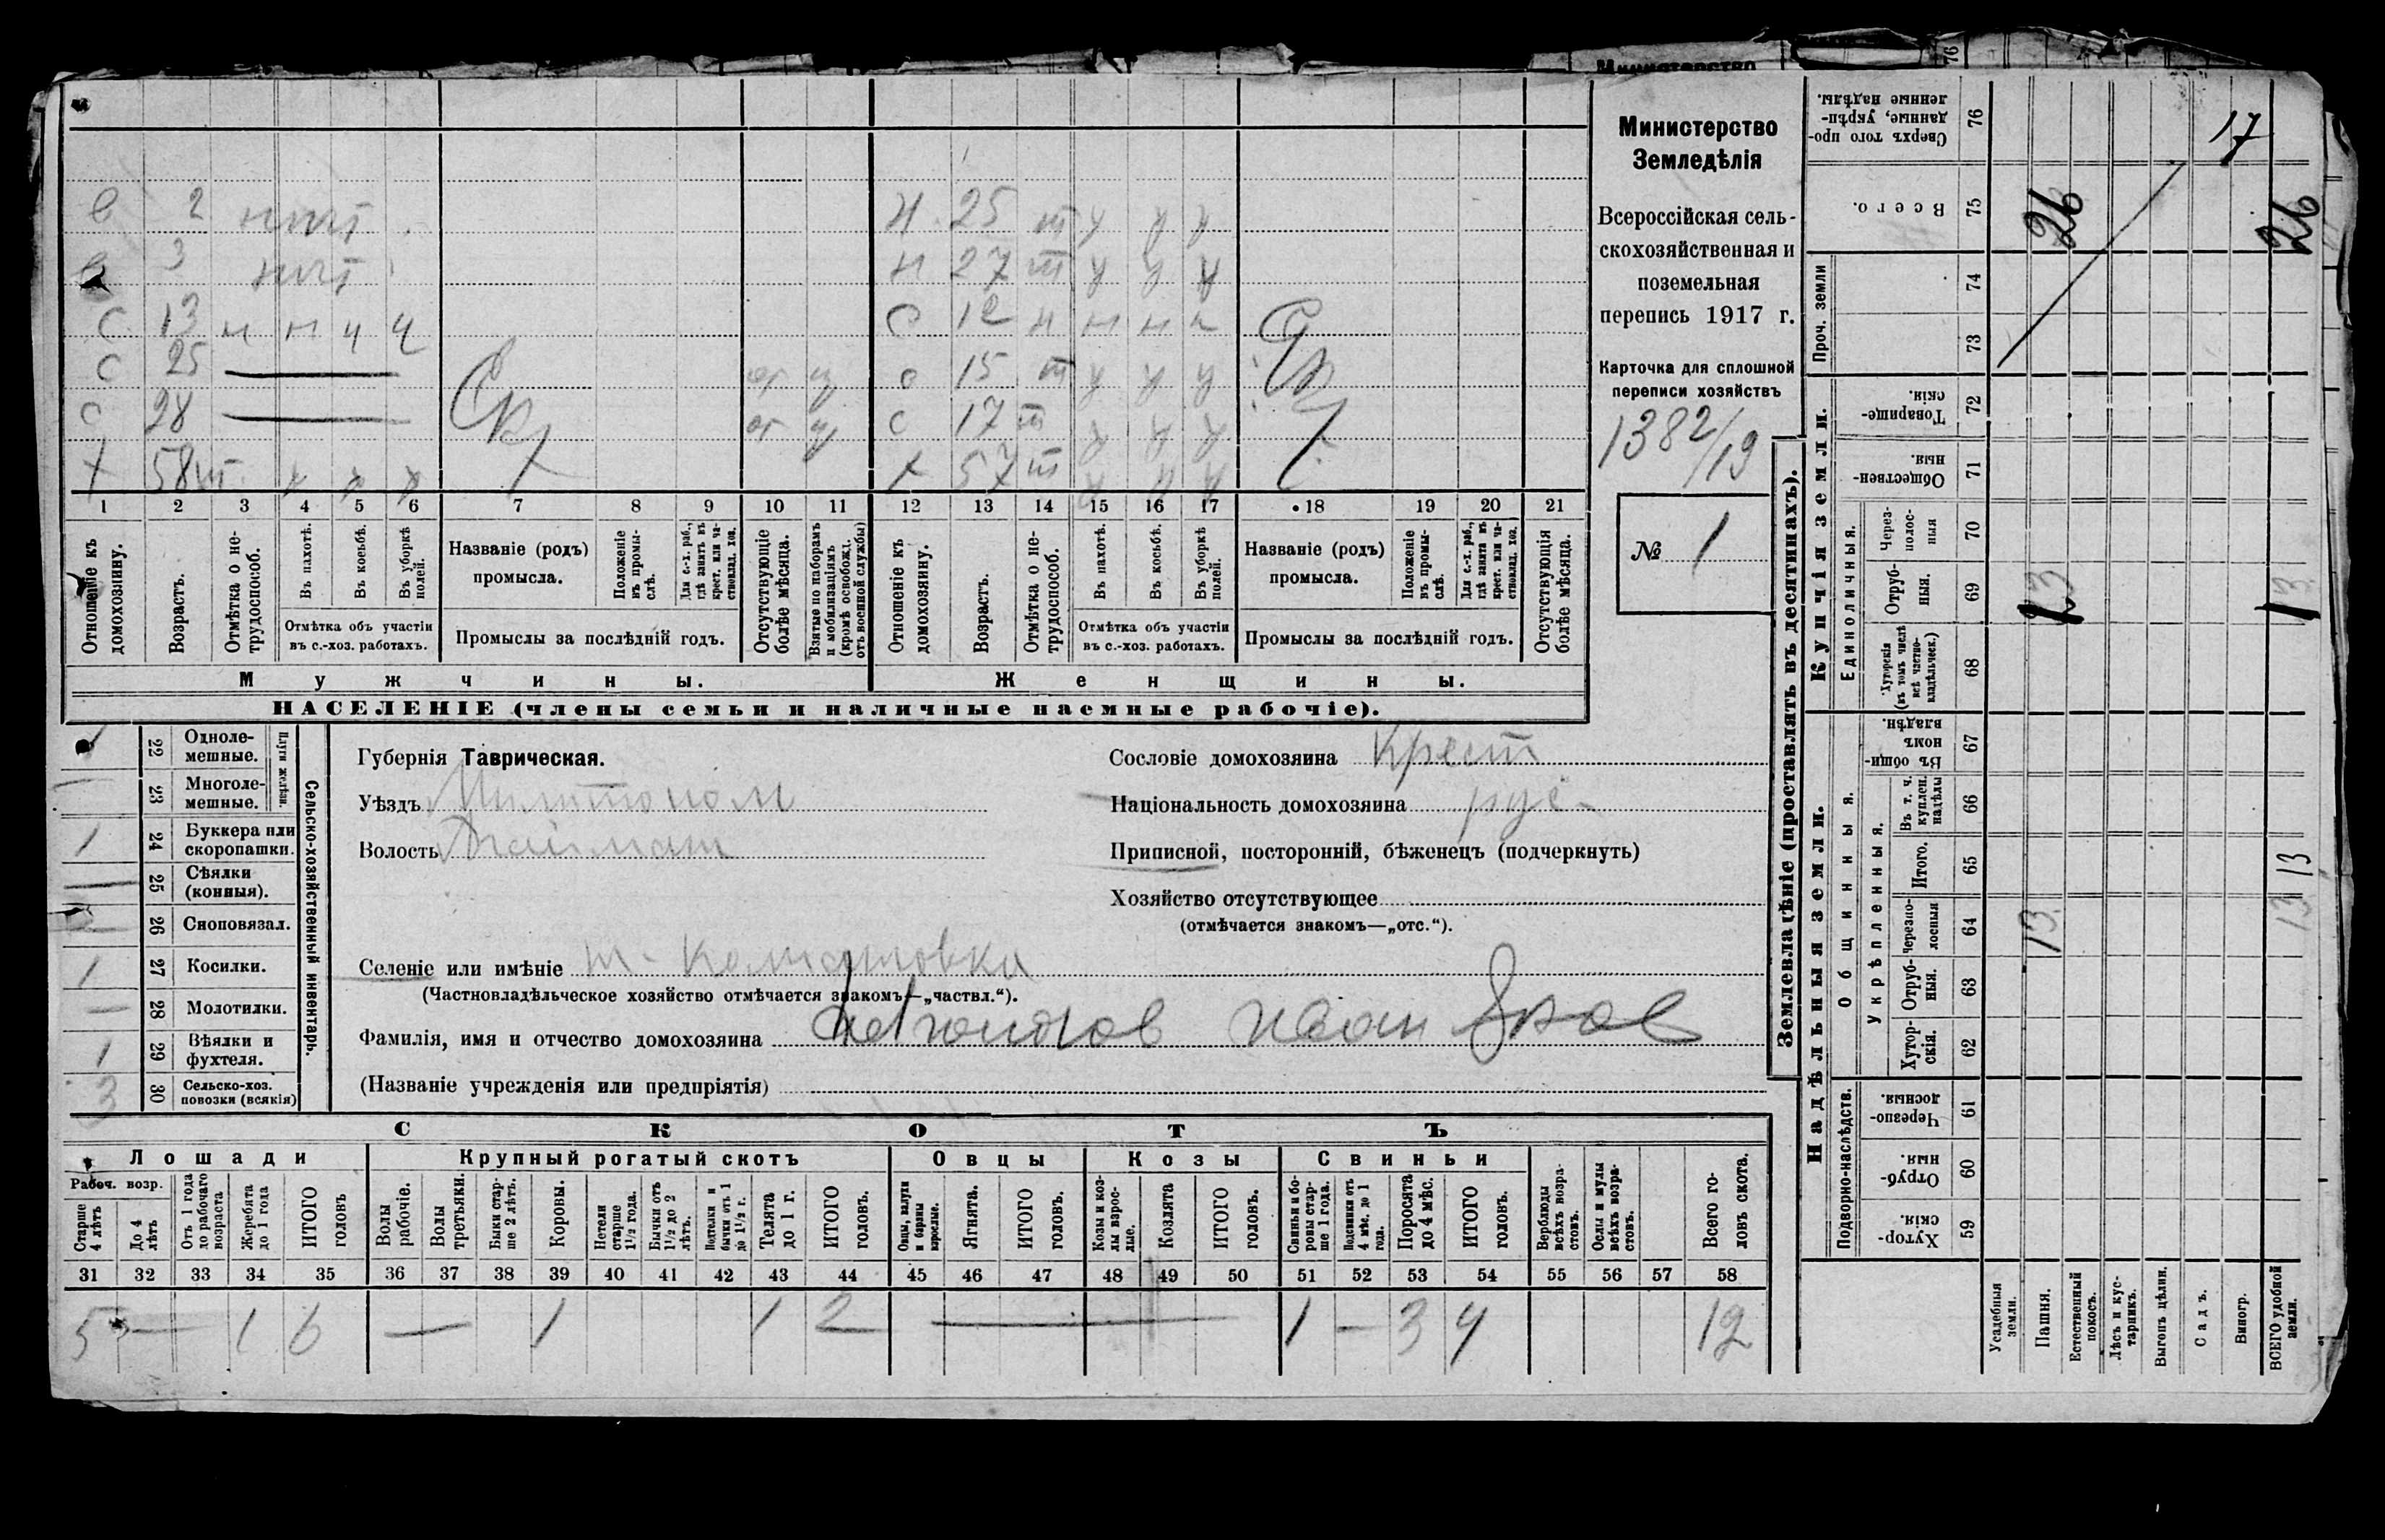 в 2 н. 25 т у у у
3 н 27 т у у у
с 13 н н ч ч с 12 н н н
с 25 — о 15 т у у у
с 28 — с 17 т у у у
х 58 т. х 57 т
1 2 3 4 5 6 7 8 9 10 11 12 13 14 15 16 17 18 19 20 21
Отношеніе къ домохозяину.
Возрастъ.
Отмѣтка о не-трудоспособ.
Въ пахотѣ.
Въ косьбѣ.
Въ уборкѣ полей.
Отмѣтка объ участіи въ с.-хоз. работахъ.
Названіе (родъ) промысла.
Положеніе въ промы-слѣ.
Для с.-х. раб., гдѣ занятъ въ крест. или ча-стновлад. хоз.
Промыслы за послѣдній годъ.
Отсутствующіе болѣе мѣсяца.
Взятые по наборамъ и мобилизаціямъ (кромѣ освобожд. отъ военной службы)
Отношеніе къ домохозяину.
Возрастъ.
Отмѣтка о не-трудоспособ.
Въ пахотѣ.
Въ косьбѣ.
Въ уборкѣ полей.
Отмѣтка объ участіи въ с.-хоз. работахъ.
Названіе (родъ) промысла.
Положеніе въ промы-слѣ.
Для с.-х. раб., гдѣ занята въ крест. или ча-стновлад. хоз.
Промыслы за послѣдній годъ.
Отсутствующія болѣе мѣсяца.
Мужчины. Женщины.
НАСЕЛЕНІЕ (члены семьи и наличные наемные рабочіе).
Министерство
Земледѣлія
Всероссійская сель-
скохозяйственная и
поземельная
перепись 1917 г.
Карточка для сплошной
переписи хозяйствъ
1382/19
№ 1
Сельско-хозяйственный инвентарь.
Плуги желѣзн.
22 Одноле-мешные.
— 23 Многоле-мешные.
1 24 Буккера или скоропашки.
— 25 Сѣялки (конныя).
— 26 Сноповязал.
1 27 Косилки.
— 28 Молотилки.
1 29 Вѣялки и фухтеля.
3 30 Сельско-хоз. повозки (всякія)
Губернія Таврическая.
Уѣздъ Мелитополь
Волость
Селеніе или имѣніе
(Частновладѣльческое хозяйство отмѣчается знакомъ—„частвл.“).
Фамилія, имя и отчество домохозяина Иван
(Названіе учрежденія или предпріятія)
Сословіе домохозяина Крест
Національность домохозяина рус.
Приписной, посторонній, бѣженецъ (подчеркнуть)
Хозяйство отсутствующее
(отмѣчается знакомъ—„отс.“).
СКОТЪ
Лошади Крупный рогатый скотъ Овцы Козы Свиньи
Рабоч. возр.
Старше 4 лѣтъ
До 4 лѣтъ
Отъ 1 года до рабочаго возраста
Жеребята до 1 года
ИТОГО головъ
Волы рабочіе.
Волы третьяки.
Быки стар-ше 2 лѣтъ.
Коровы.
Нетели старше 1½ года.
Бычки отъ 1½ до 2 лѣтъ.
Подтелки и бычки отъ 1 до 1½ г.
Телята до 1 г.
ИТОГО головъ.
Овцы, валухи и бараны взрослые.
Ягнята.
ИТОГО головъ.
Козы и коз-лы взрос-лые.
Козлята
ИТОГО головъ.
Свиньи и бо-ровы стар-ше 1 года.
Подсвинки отъ 4 мѣс. до 1 года.
Поросята до 4 мѣс.
ИТОГО головъ.
Верблюды всѣхъ возра-стовъ.
Ослы и мулы всѣхъ возра-стовъ.
Всего го-ловъ скота.
31 32 33 34 35 36 37 38 39 40 41 42 43 44 45 46 47 48 49 50 51 52 53 54 55 56 57 58
5 — 1 6 — 1 1 2 — 1 — 3 4 12
Землевладѣніе (проставлять въ десятинахъ).
Сверхъ того про-данные, укрѣп-ленные надѣлы. 76 17
Всего. 75 26 26
Проч. земли 74 73
Купчія земли.
Товарище-скія. 72
Обществен-ныя. 71
Единоличныя.
Через-полос-ныя 70
Отруб-ныя. 69 13 13
Хуторскія (въ томъ числѣ всѣ частно-владѣльческ.) 68
Надѣльныя земли.
Общинныя.
Въ общи-номъ владѣн. 67
Укрѣпленныя.
Въ т. ч. куплен. надѣлы 66
Итого. 65 13
Черезпо-лосныя 64 13. 13
Отруб-ныя. 63
Хутор-скія. 62
Подворно-наслѣдств.
Черезпо-лосныя. 61
Отруб-ныя. 60
Хутор-скія. 59
Усадебныя земли.
Пашня.
Естественный покосъ.
Лѣсъ и кус-тарникъ.
Выгонъ цѣлин.
Садъ.
Виногр.
ВСЕГО удобной земли.